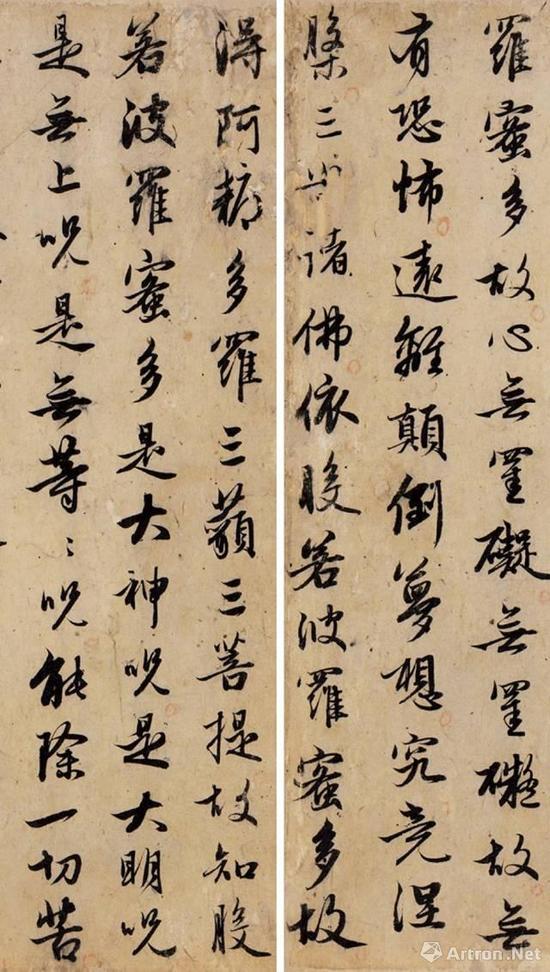 羅蜜多故心無罣礙無罣礙故無
有恐怖遠離顛倒夢想究竟涅
槃三世諸佛依般若波羅蜜多故
得阿耨多羅三藐三菩提故知般
若波羅蜜多是大神呪是大明呪
是無上呪是無等〻呪能除一切苦
Artron.Net